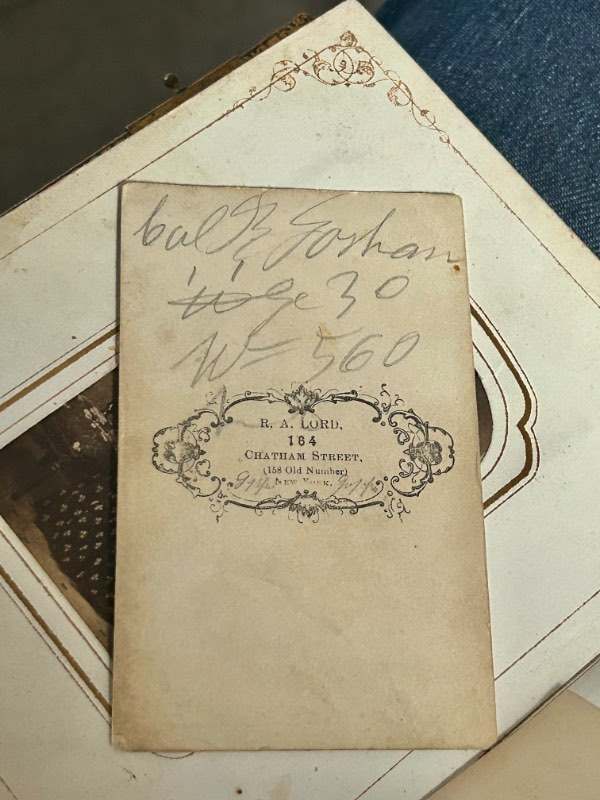 Col R Goshan
age 30
Wt 560
R. A. LORD,
164
CHATHAM STREET,
(158 Old Number)
NEW YORK.